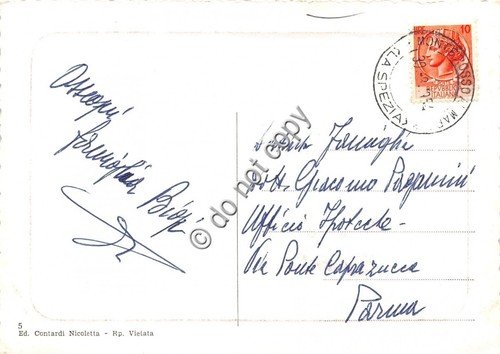 Ossequi
famiglia Biggi
Famiglia
Dott. Giacomo Paganini
Ufficio Ipoteche -
Via Ponte Caprazucca
Parma
10
MONTEROSSO AL MARE
(LA SPEZIA)
ITALIANA
© do not copy
5
Ed. Contardi Nicoletta - Rp. Vietata